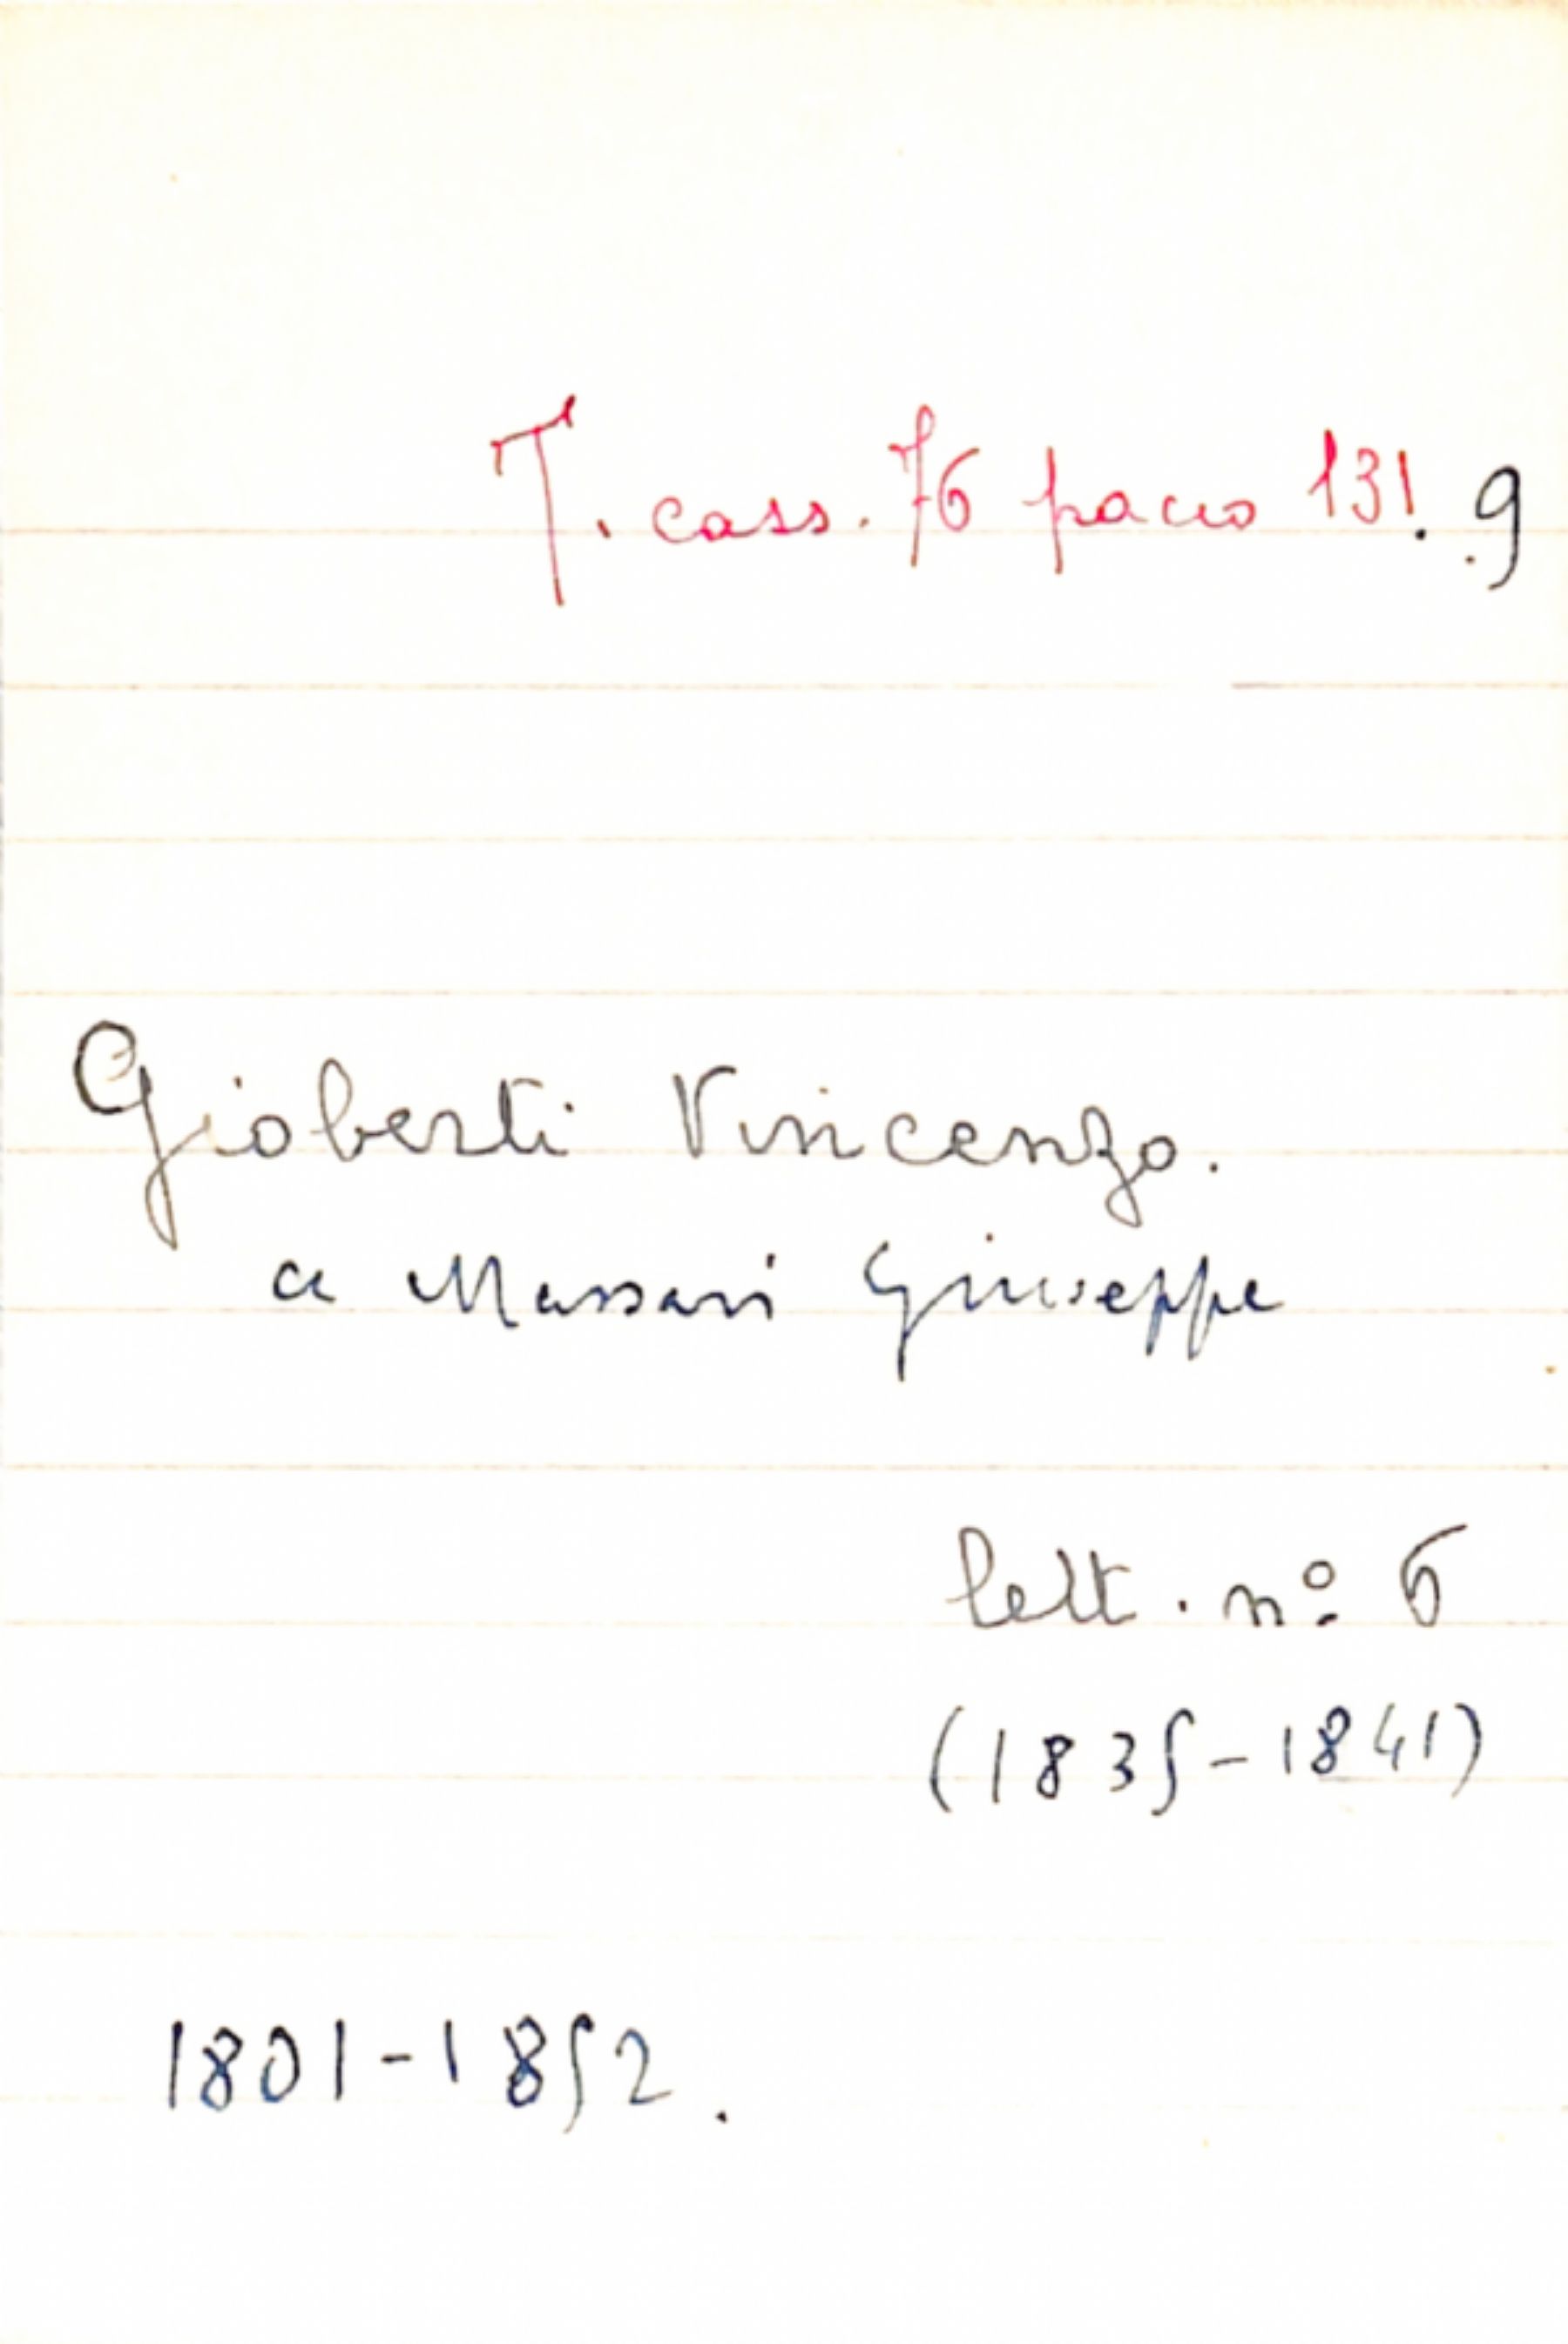 T. cass. 76 pacco 131. .9
Gioberti Vincenzo.
a Massari Giuseppe
lett. nº 6
(1835-1841)
1801-1852.